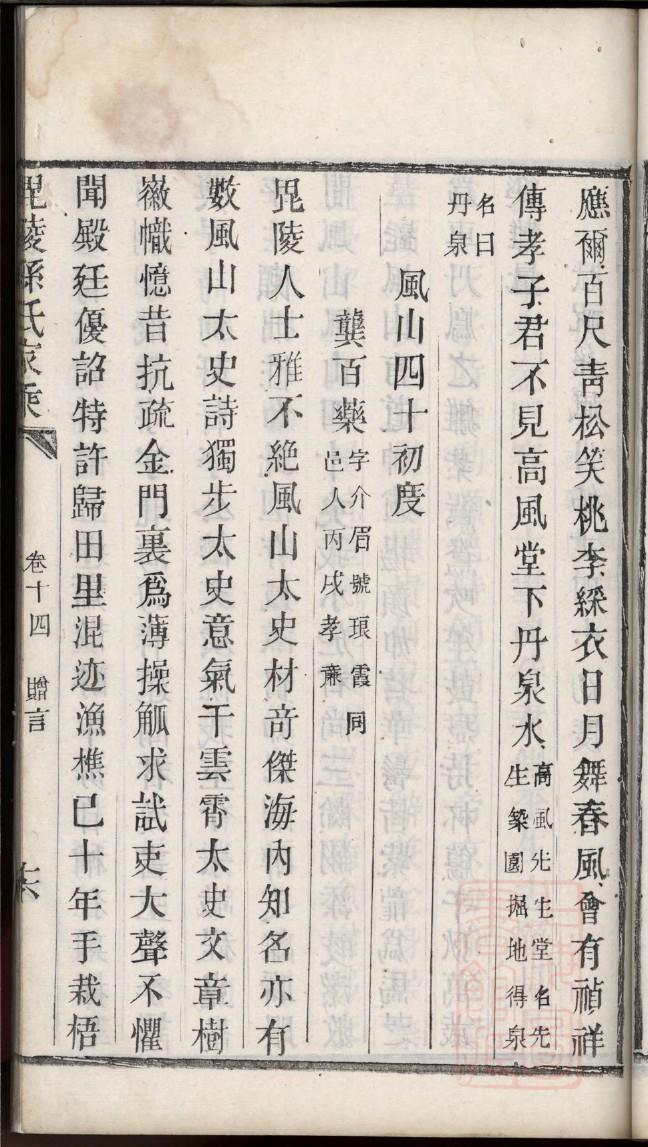 應爾百尺靑松笑桃李綵衣日月舞春風會有禎祥
傳孝子君不見高風堂下丹泉水高風先生堂名先生築園掘地得泉
名曰丹泉
風山四十初度
龔百藥字介眉號琅霞同邑人丙戌孝亷
毘陵人士雅不絕風山太史材竒傑海內知名亦有
數風山太史詩獨步太史意氣干雲霄太史文章樹
徽幟憶昔抗疏金門裏爲薄操觚求試吏大聲不懼
聞殿廷優詔特許歸田里混迹漁樵已十年手栽梧
毘陵孫氏家乘
卷十四
贈言